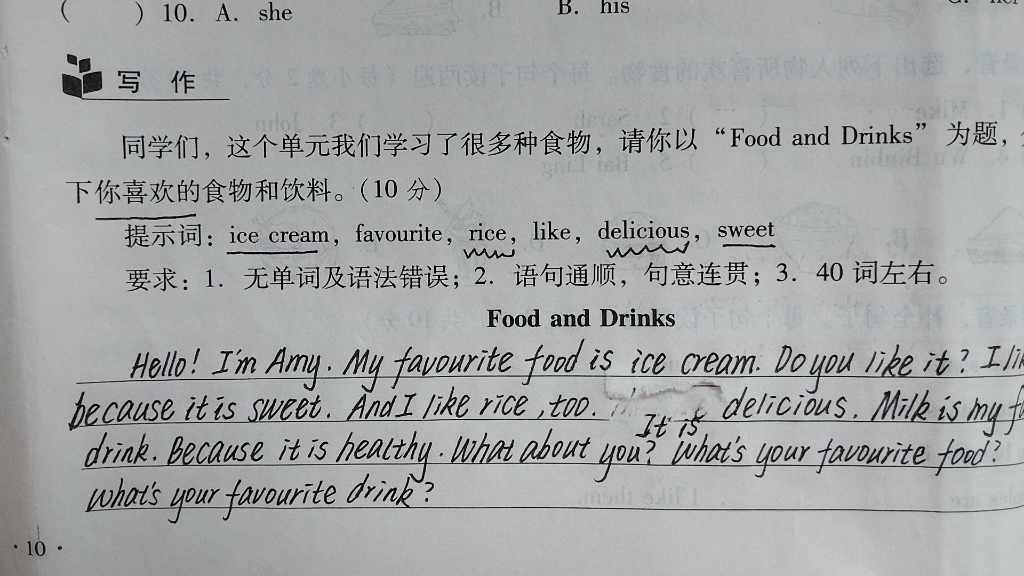 ( ) 10. A. she B. his C.
写 作
同学们，这个单元我们学习了很多种食物，请你以“Food and Drinks”为题，
下你喜欢的食物和饮料。(10 分)
提示词：ice cream, favourite, rice, like, delicious, sweet
要求：1. 无单词及语法错误；2. 语句通顺，句意连贯；3. 40 词左右。
Food and Drinks
Hello! I'm Amy. My favourite food is ice cream. Do you like it? I
because it is sweet. And I like rice, too. It is delicious. Milk is my
drink. Because it is healthy. What about you? What's your favourite food?
What's your favourite drink?
· 10 ·